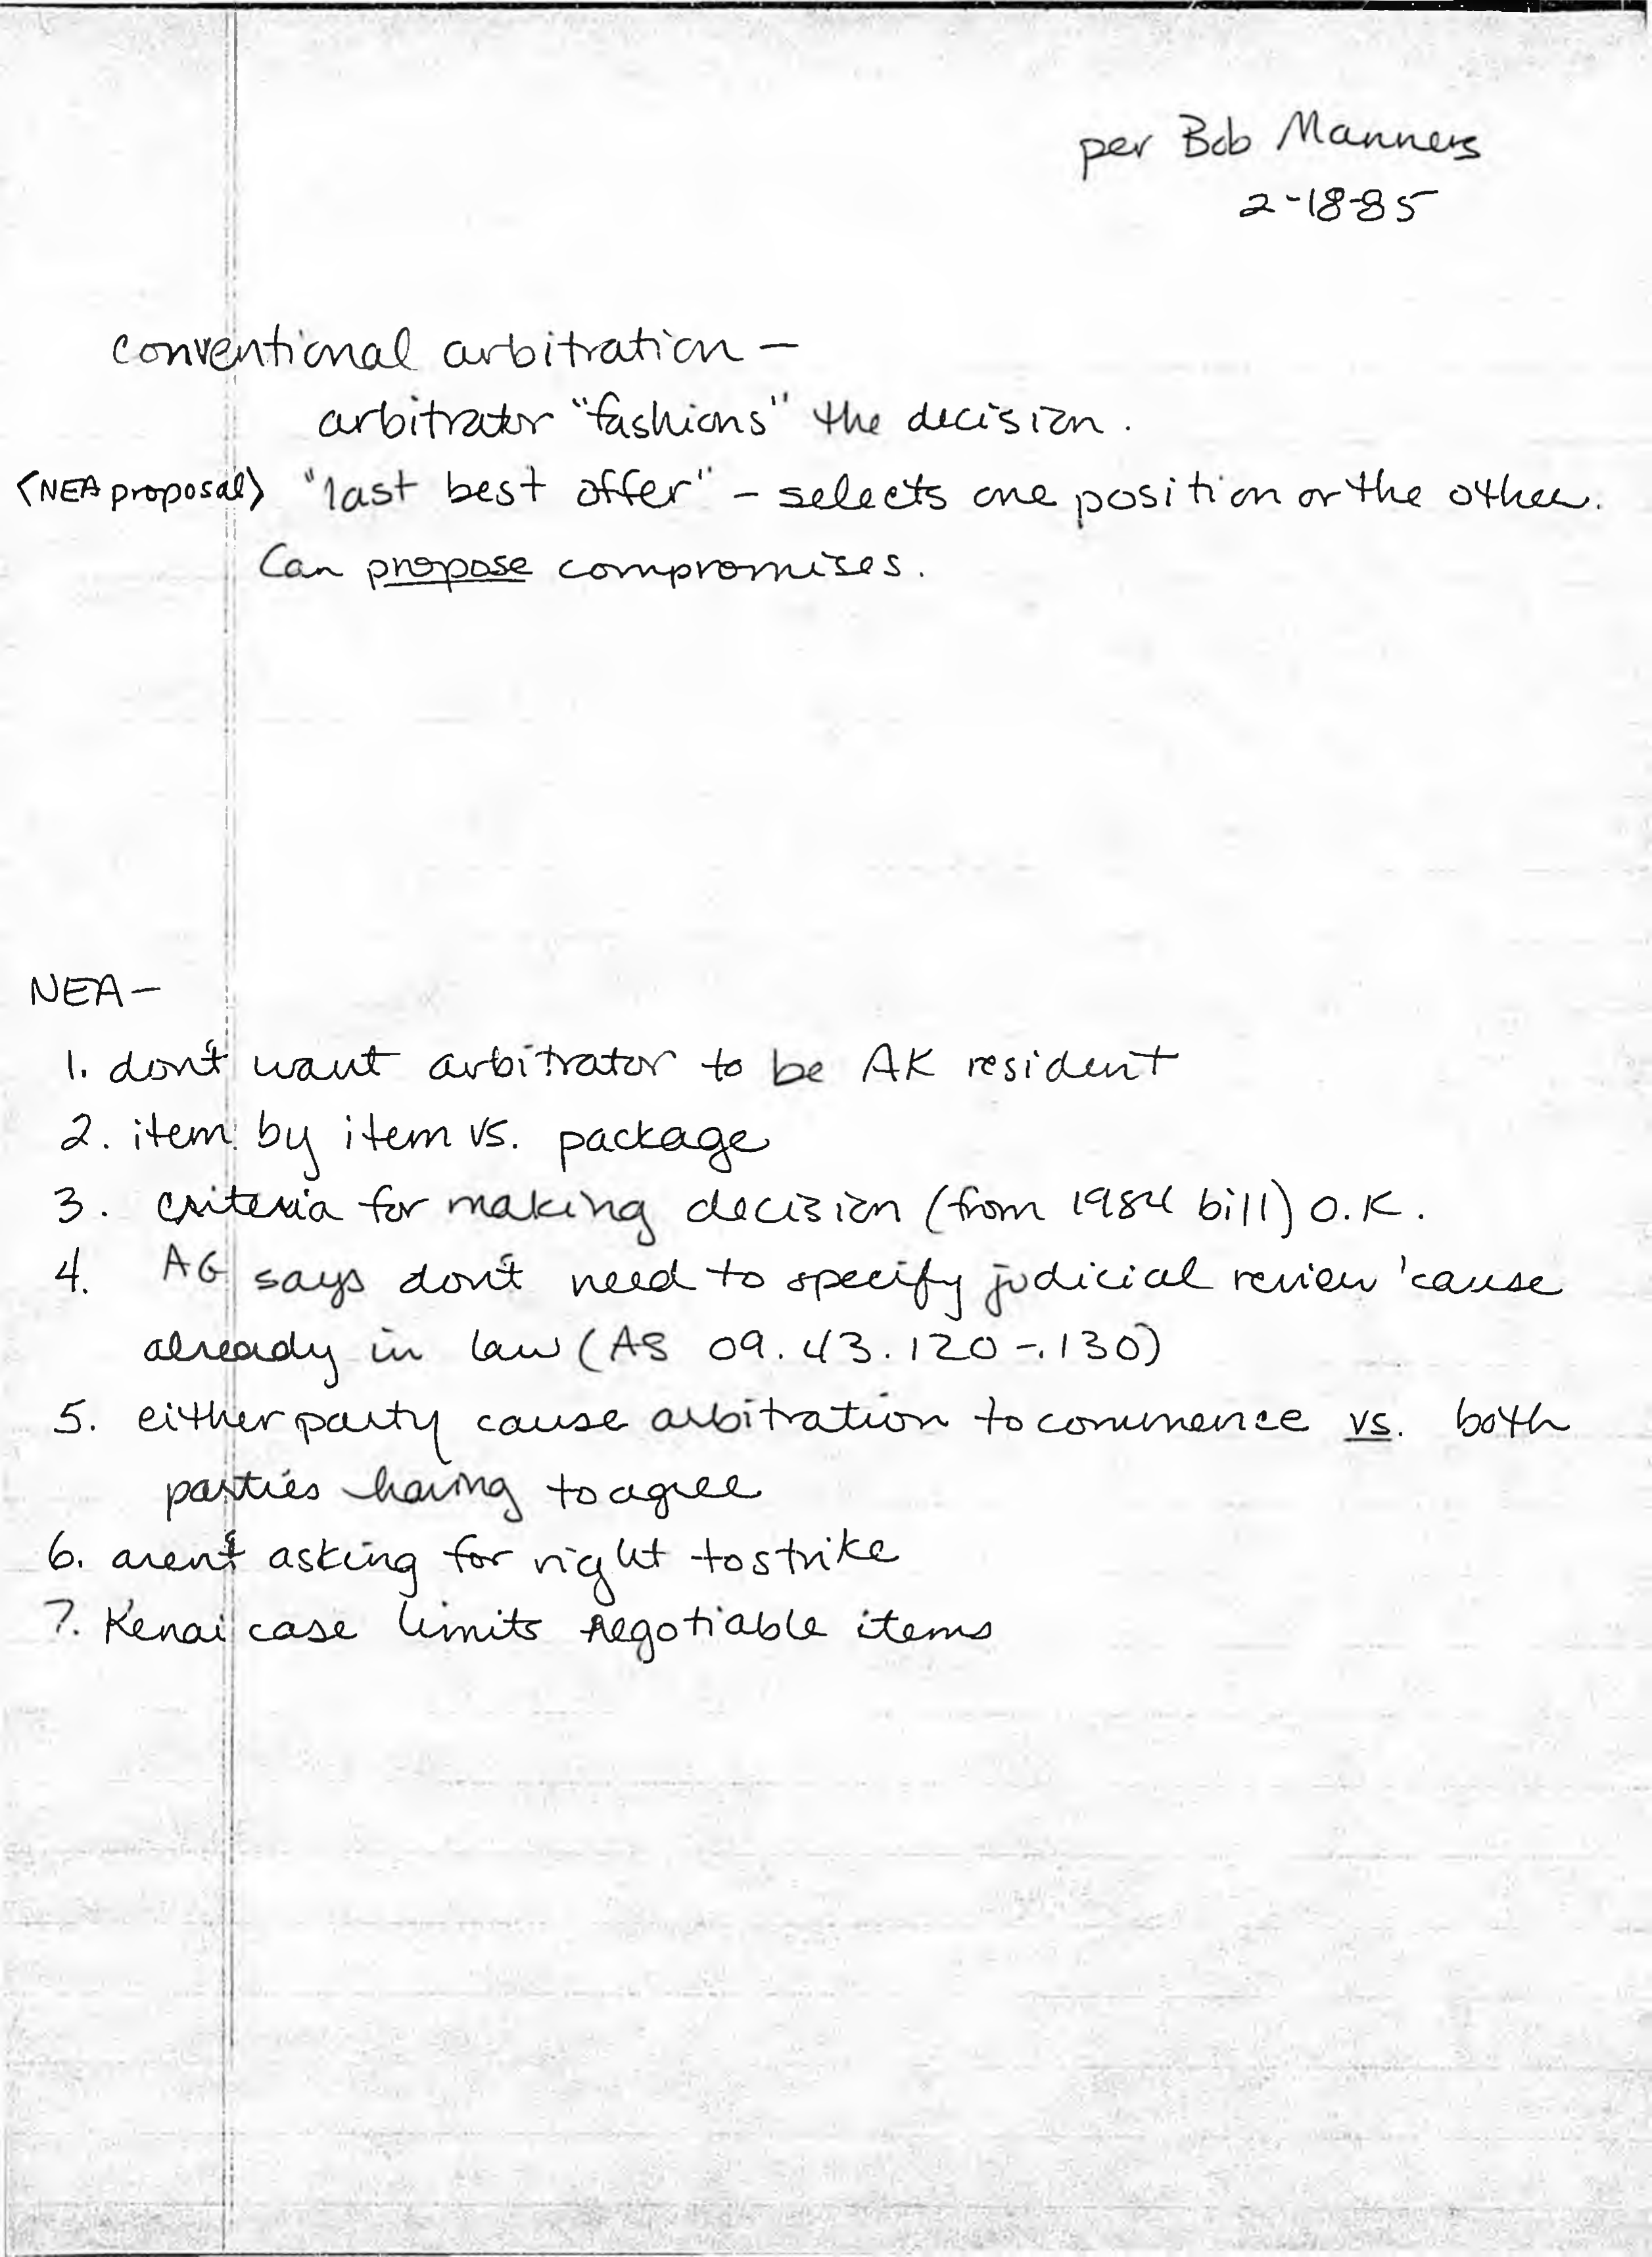 per Bob Manners
2-18-85
conventional arbitration –
arbitrator "fashions" the decision.
<NEA proposal> "last best offer" – selects one position or the other.
Can propose compromises.
NEA –
1. don't want arbitrator to be AK resident
2. item by item vs. package
3. criteria for making decision (from 1984 bill) O.K.
4. AG says don't need to specify judicial review 'cause
already in law (AS 09.43.120-.130)
5. either party cause arbitration to commence vs. both
parties having to agree
6. aren't asking for right to strike
7. Kenai case limits negotiable items